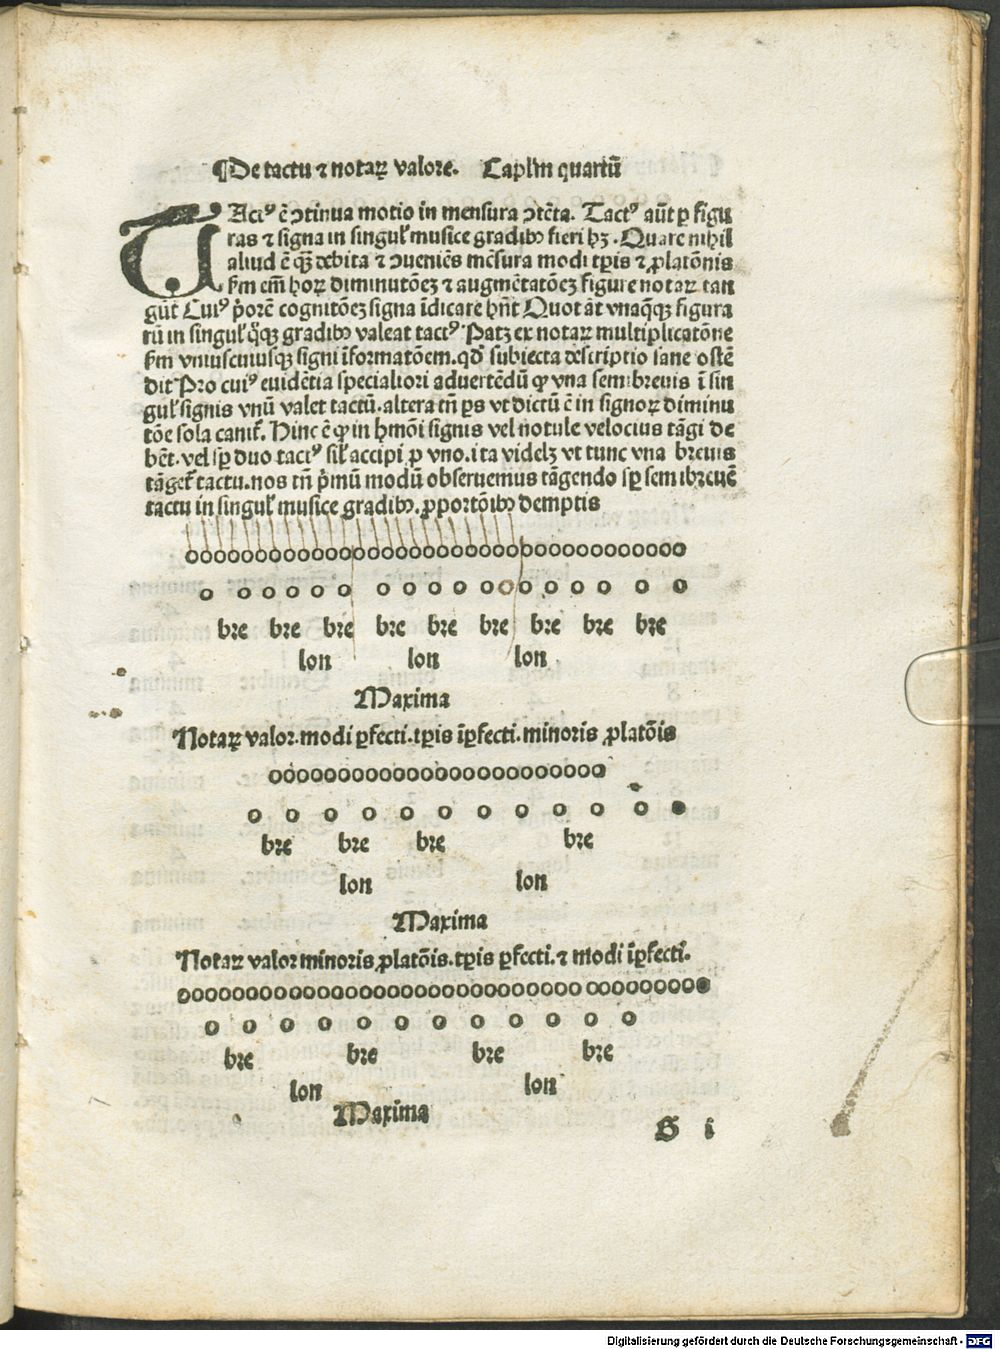 ¶De tactu ⁊ notaꝝ valore. Capl'm quartū
TActꝰ ē ↄtinua motio in mensura ↄtēta. Tactꝰ aūt ꝑ figu
ras ⁊ signa in singul' musice gradibꝰ fieri hꝫ. Quare nihil
aliud ē qꝫ debita ⁊ ↄueniēs mēsura modi tꝑis ⁊ ꝓlatōnis
ẜm em̄ hoꝝ diminutōeꝫ ⁊ augmētatōeꝫ figure notaꝝ tan
gūt̄ Cuiꝰ p̄orē cognitōeꝫ signa īdicare hn̄t Quot āt vnaq̄qꝫ figura
rū in singul' q̄qꝫ gradibꝰ valeat tactꝰ Patꝫ ex notaꝝ multiplicatōne
ẜm vniuscuiusqꝫ signi īformatōem. qd̄ subiecta descriptio sane ostē
dit Pro cuiꝰ euidētia specialiori aduertēdū ꝙ vna semibreuis ī sin
gul' signis vnū valet tactū. altera tn̄ ꝑs vt dictū ē in signoꝝ diminu
tōe sola canit̄. Hinc ē ꝙ in hmōi signis vel notule velocius tāgi de
bēt. vel sꝑ duo tactꝰ sil' accipi ꝓ vno. ita videlꝫ vt tunc vna breuis
tāget̄ tactu. nos tn̄ p̄mū modū obseruemus tāgendo sꝑ semibreuē
tactu in singul' musice gradibꝰ. ꝓportōibꝰ demptis
oooooooooooooooooooooooooooooooooooo
o o o o o o o o o o o o o o o o o o
bre bre bre bre bre bre bre bre bre
lon lon lon
Maxima
Notaꝝ valor. modi ꝑfecti. tꝑis īꝑfecti. minoris ꝓlatōis
oooooooooooooooooooooooo
o o o o o o o o o o o o
bre bre bre bre
lon lon
Maxima
Notaꝝ valor minoris ꝓlatōis. tꝑis ꝑfecti. ⁊ modi īꝑfecti.
oooooooooooooooooooooooooooo ooooooooo
o o o o o o o o o o o o
bre bre bre bre
lon lon
Maxima
G i
Digitalisierung gefördert durch die Deutsche Forschungsgemeinschaft - DFG